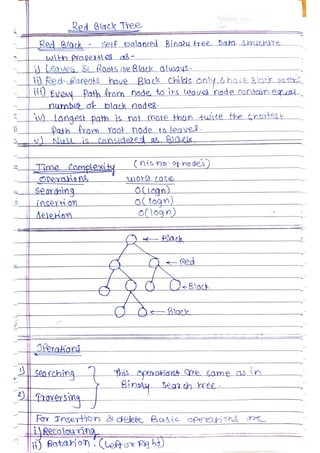 Red Black Tree
Red Black - self balanced Binary tree Data structure
with properties as -
i) Leaves & Roots are Black always.
ii) Red Parents have Black childs only & have Black
iii) Every Path from node to its leaves node contain equal
number of black nodes.
iv) Longest path is not more than twice the shortest
Path from root node to leaves.
v) Null is considered as Black.
Time complexity (n is no. of nodes)
operations worst case
Searching O(logn)
insertion O(logn)
deletion O(logn)
Black
Red
Black
Black
Operations
1) Searching
This operations are same as in
Binary Search tree.
2) Traversing
For Insertion & delete Basic operations are
i) Recolouring
ii) Rotation. (Left or Right)